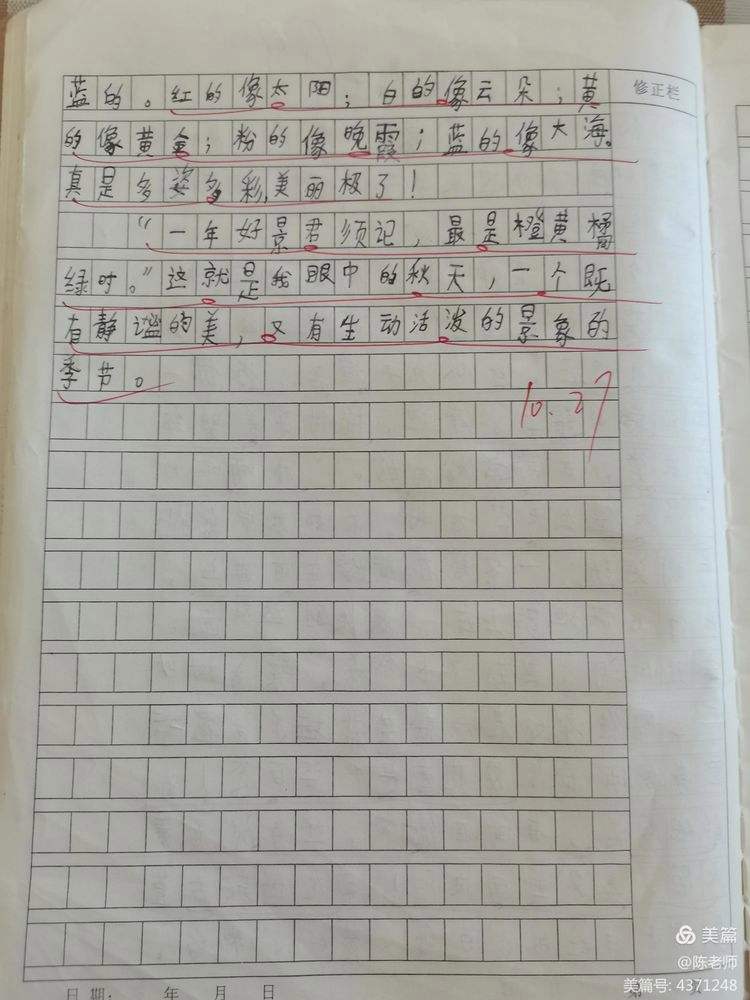 蓝的。红的像太阳；白的像云朵；黄
修正栏
的像黄金；粉的像晚霞；蓝的像大海。
真是多姿多彩，美丽极了！
“一年好景君须记，最是橙黄橘
绿时。”这就是我眼中的秋天，一个既
有静谧的美，又有生动活泼的景象的
季节。
10.27
日期： 年 月 日
第
美篇
@陈老师
美篇号: 4371248